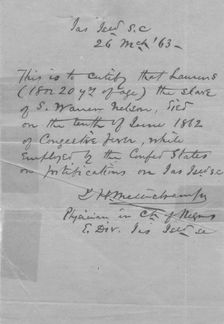 Jas Isld S.C
26 Mch '63 -
This is to certify that Laurens
(18 or 20 yrs of age) the slave
of S. Warren Nelson, died
on the tenth of June 1862
of Congestive fever, while
employed by the Confed States
on fortifications on Jas Isld sc
Physician in Ch of Negroes
E. Div. Jas Isld sc